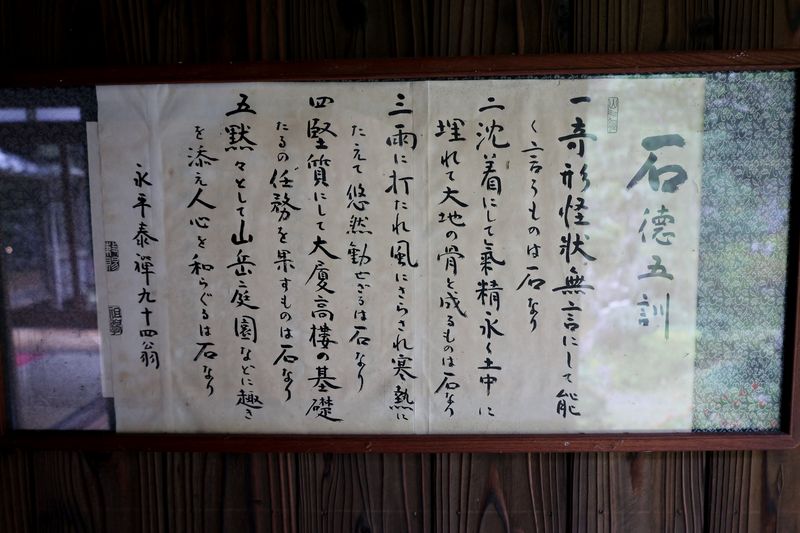 石徳五訓
一 奇形怪状無言にして能
く言うものは石なり
二 沈着にして氣精永く土中に
埋れて大地の骨と成るものは石なり
三 雨に打たれ風にさらされ寒熱に
たえて悠然動せざるは石なり
四 堅質にして大廈高樓の基礎
たるの任務を果すものは石なり
五 黙々として山岳庭園などに趣き
を添え人心を和らぐるは石なり
永平泰禪九十四翁